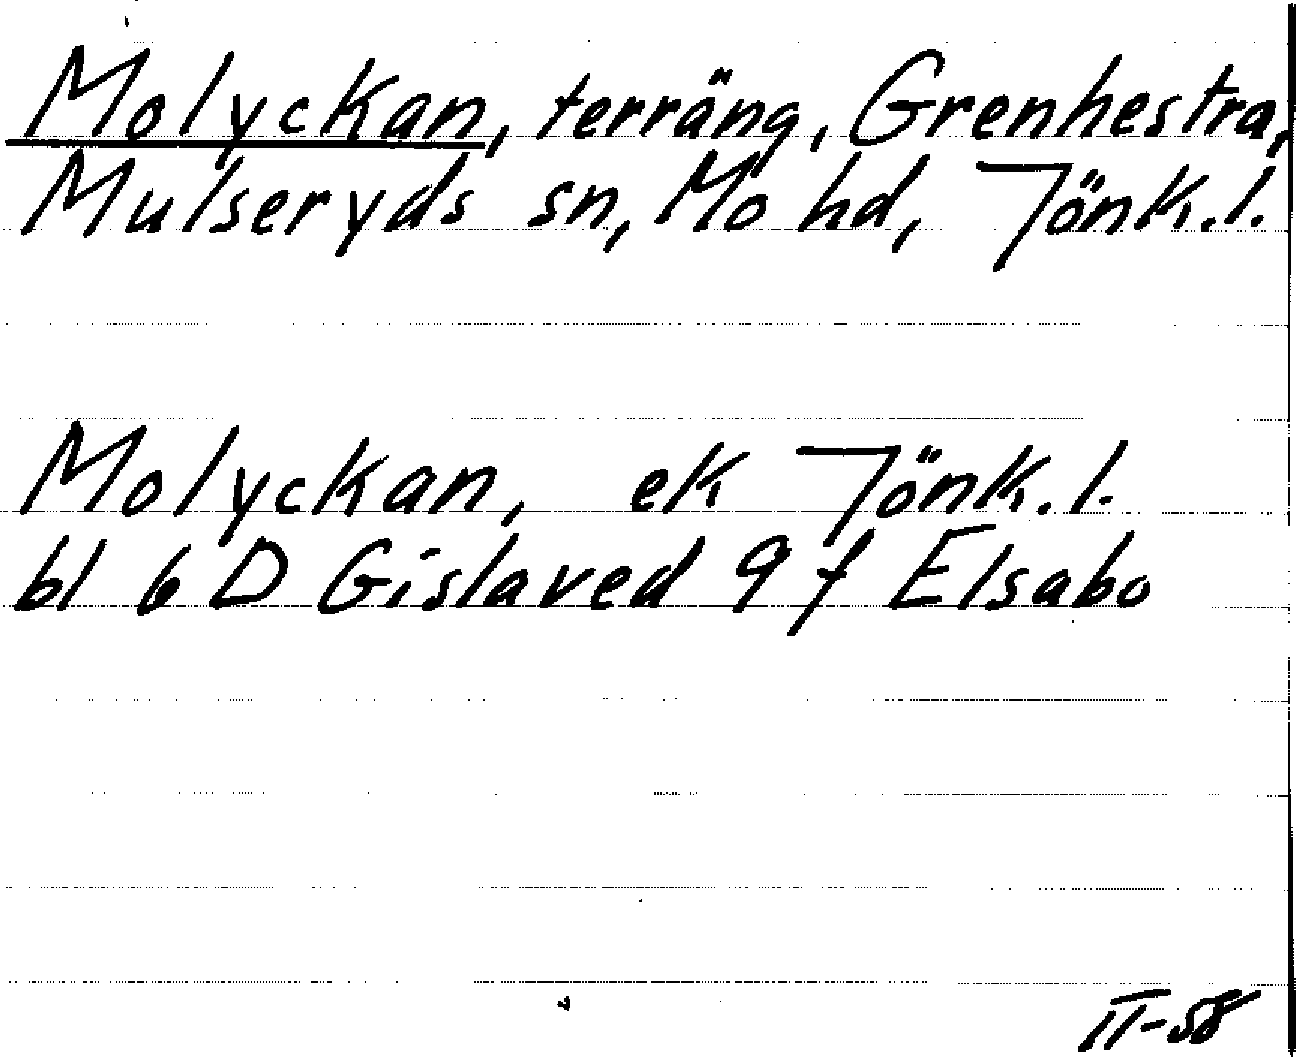 Molyckan, terräng, Grenhestra,
Mulseryds sn, Mo hd, Jönk. l.
Molyckan, ek Jönk. l.
bl 6 D Gislaved 9 f Elsabo
II-58